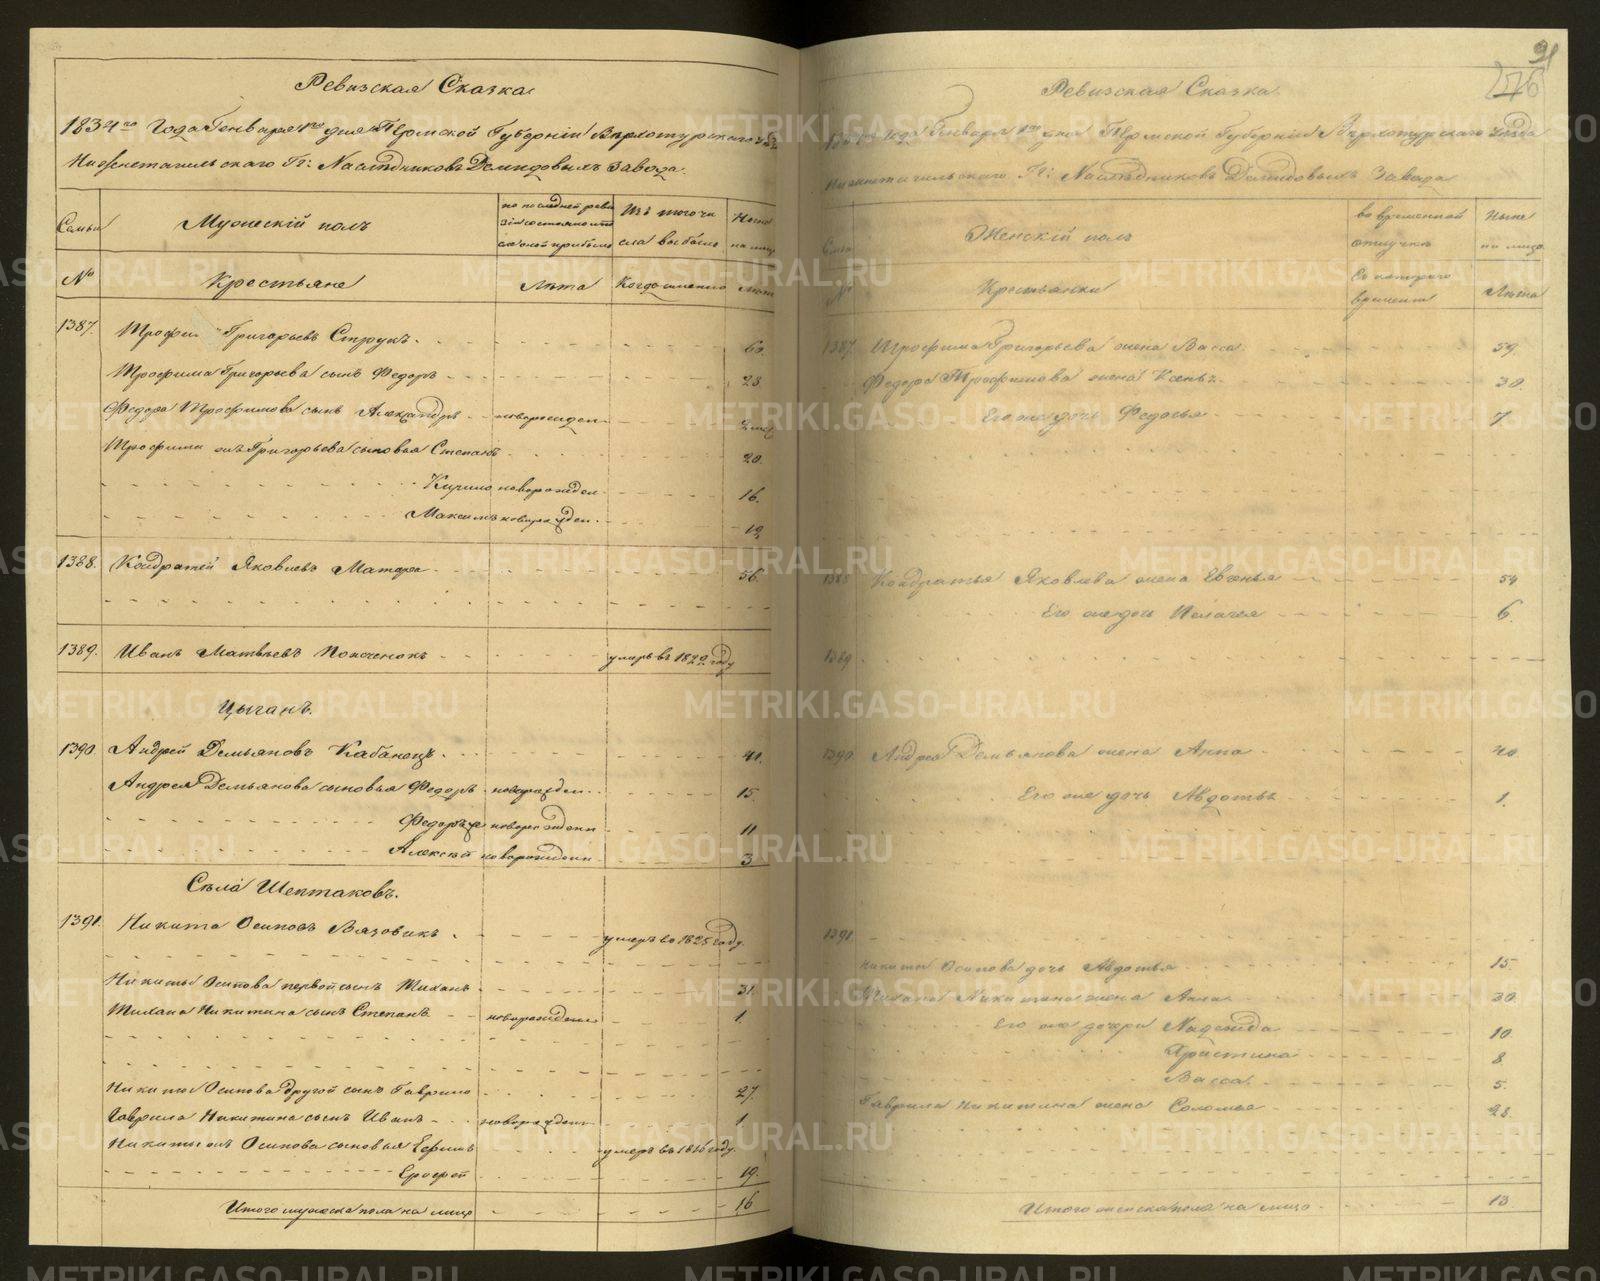 Ревизская Сказка
1834го Года Генваря 1го дня Пермской Губерніи Верхотурскаго
Нижнетагильскаго Гг: Наслѣдниковъ Демидовыхъ завода.
Семьи
Мужескій полъ
по последней реви
зіи состояло и по
слѣ оной прибыло
Изъ того чи
сла выбыло
Ныне
на лицо
№
Крестьяне
Лѣта
Когда именно
Лѣта
1387. Григорьевъ Струкъ. 60.
Трофима Григорьева сынъ Федоръ 28.
Федора Трофимова сынъ Александръ новорожден.
Трофима жъ Григорьева сыновья Степанъ 20.
Кирило новорожден. 16.
Максимъ новорожден. 12
1388. Кондратей Яковлевъ 56.
1389. Иванъ Матвѣевъ умеръ въ 1829 году
Цыганъ.
1390. Андрей Демьяновъ Кабанецъ. 41.
Андрея Демьянова сыновья Федоръ новорожден. 15.
Федоръ же новорожденн 11
Алексѣй новорожденн 3
Села Шептаковъ.
1391. Никита Осиповъ Вязовикъ. умеръ въ 1825 году.
Никиты Осипова первой сынъ 31.
Никитина сынъ Степанъ новорожденн 1.
Никиты Осипова другой сынъ Гаврило 27.
Гаврила Никитина сынъ Иванъ новорожденн 1.
Никиты жъ Осипова сыновья Ефимъ умеръ въ 1816 году.
Ерофей 19.
Итого мужеска пола на лицо 16
91
Ревизская Сказка
Года Генваря 1го дня Пермской Губерніи Верхотурскаго уѣзда
Нижнетагильскаго Гг: Наслѣдниковъ Демидовыхъ Завода
Семьи
Женскій полъ
во временной
отлучке
Ныне
на лицо
№
Крестьянки
Съ котораго
времени
Лѣта
1387. Трофима Григорьева жена Васса. 59.
Федора Трофимова жена 30.
Его же дочь Федосья 7.
1388 Кондратья Яковлева жена Евгенья 54
Его же дочь Пелагея 6.
1389
1390. Андрея Демьянова жена Анна 40.
Его же дочь Авдотья 1.
1391.
Никиты Осипова дочь Авдотья 15.
Никитина жена Анна 30.
Его же дочери Надежда 10
Христина 8.
Васса. 5.
Гаврила Никитина жена 28.
Итого женска пола на лицо 13.
METRIKI.GASO-URAL.RU